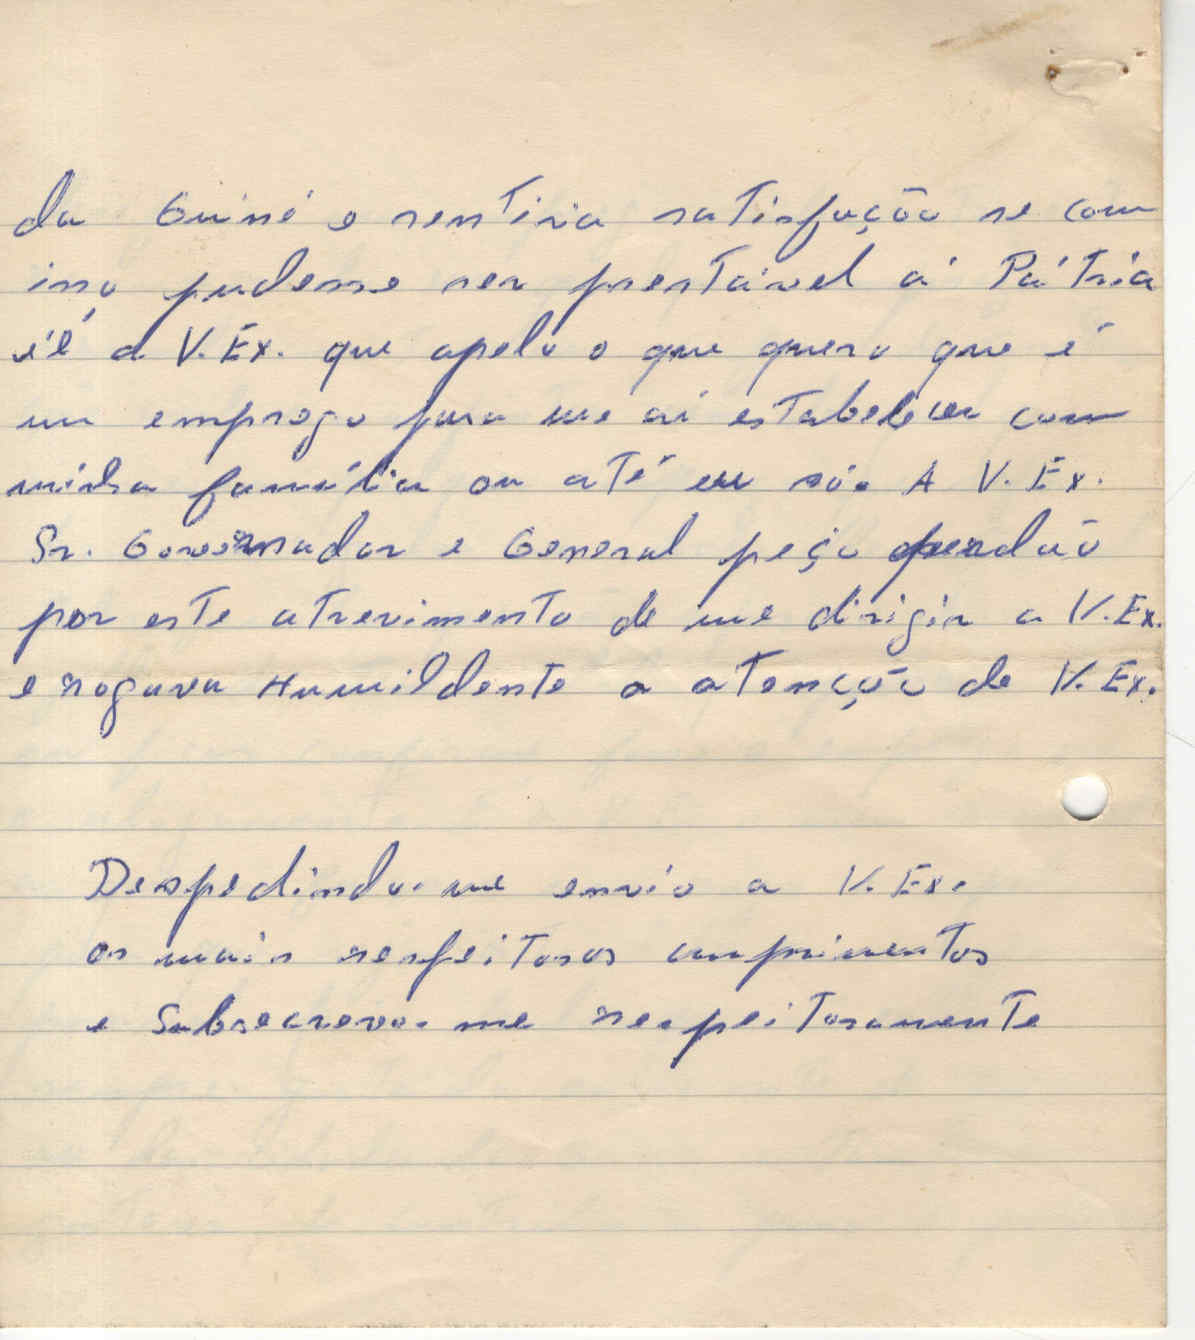 da Guiné e sentiria satisfação se com
isso pudesse ser prestável á Pátria
e'é a V. Ex. que apelo o que quero que é
um emprego para me aí estabelecer com
minha família ou até eu só. A V. Ex.
Sr. Governador e General peço perdão
por este atrevimento de me dirigir a V. Ex.
e rogava Humildente a atenção de V. Ex.
Despedindo-me envio a V. Ex.
os mais respeitosos cumprimentos
e Subsecrevo-me respeitosamente